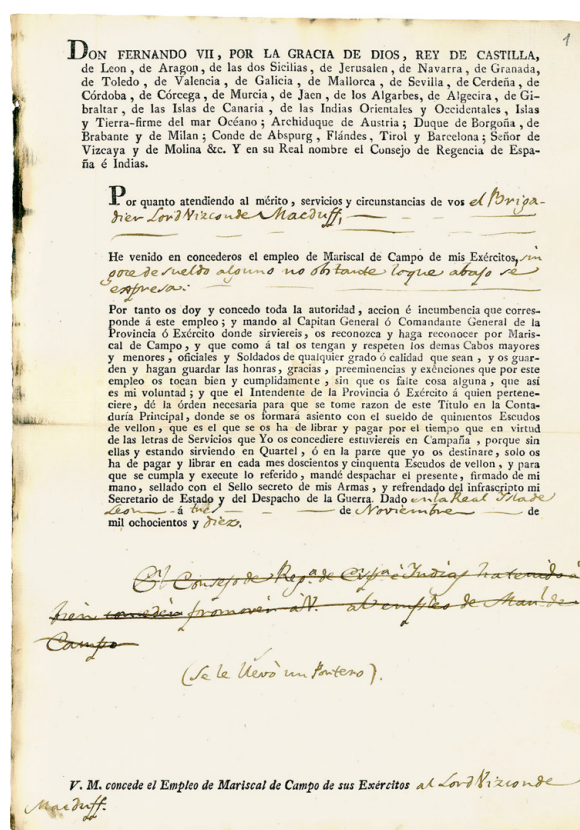 1
DON FERNANDO VII, POR LA GRACIA DE DIOS, REY DE CASTILLA,
de Leon, de Aragon, de las dos Sicilias, de Jerusalen, de Navarra, de Granada,
de Toledo, de Valencia, de Galicia, de Mallorca, de Sevilla, de Cerdeña, de
Córdoba, de Córcega, de Murcia, de Jaen, de los Algarbes, de Algecira, de Gi-
braltar, de las Islas de Canaria, de las Indias Orientales y Occidentales, Islas
y Tierra-firme del mar Océano; Archiduque de Austria; Duque de Borgoña, de
Brabante y de Milan; Conde de Abspurg, Flándes, Tirol y Barcelona; Señor de
Vizcaya y de Molina &c. Y en su Real nombre el Consejo de Regencia de Espa-
ña é Indias.
Por quanto atendiendo al mérito, servicios y circunstancias de vos el Briga-
dier Lord Vizconde Macduff,
He venido en concederos el empleo de Mariscal de Campo de mis Exércitos, sin
goce de sueldo alguno no obstante loque abajo se
expresa.
Por tanto os doy y concedo toda la autoridad, accion é incumbencia que corres-
ponde á este empleo; y mando al Capitan General ó Comandante General de la
Provincia ó Exército donde sirviereis, os reconozca y haga reconocer por Maris-
cal de Campo, y que como á tal os tengan y respeten los demas Cabos mayores
y menores, oficiales y Soldados de qualquier grado ó calidad que sean, y os guar-
den y hagan guardar las honras, gracias, preeminencias y exênciones que por este
empleo os tocan bien y cumplidamente, sin que os falte cosa alguna, que así
es mi voluntad; y que el Intendente de la Provincia ó Exército á quien pertene-
ciere, dé la órden necesaria para que se tome razon de este Título en la Conta-
duría Principal, donde se os formará asiento con el sueldo de quinientos Escudos
de vellon, que es el que se os ha de librar y pagar por el tiempo que en virtud
de las letras de Servicios que Yo os concediere estuviereis en Campaña, porque sin
ellas y estando sirviendo en Quartel, ó en la parte que yo os destinare, solo os
ha de pagar y librar en cada mes doscientos y cinqüenta Escudos de vellon, y para
que se cumpla y execute lo referido, mandé despachar el presente, firmado de mi
mano, sellado con el Sello secreto de mis Armas, y refrendado del infrascripto mi
Secretario de Estado y del Despacho de la Guerra. Dado en la Real Isla de
Leon á tres de Noviembre de
mil ochocientos y diez.
El Consejo de Reg.ª de Esp.ª é Indias ha tenido á
bien conceder promover à V. al empleo de Mar.l de
Campo
(Se le llevò un Portero).
V. M. concede el Empleo de Mariscal de Campo de sus Exércitos al Lord Vizconde
Macduff.